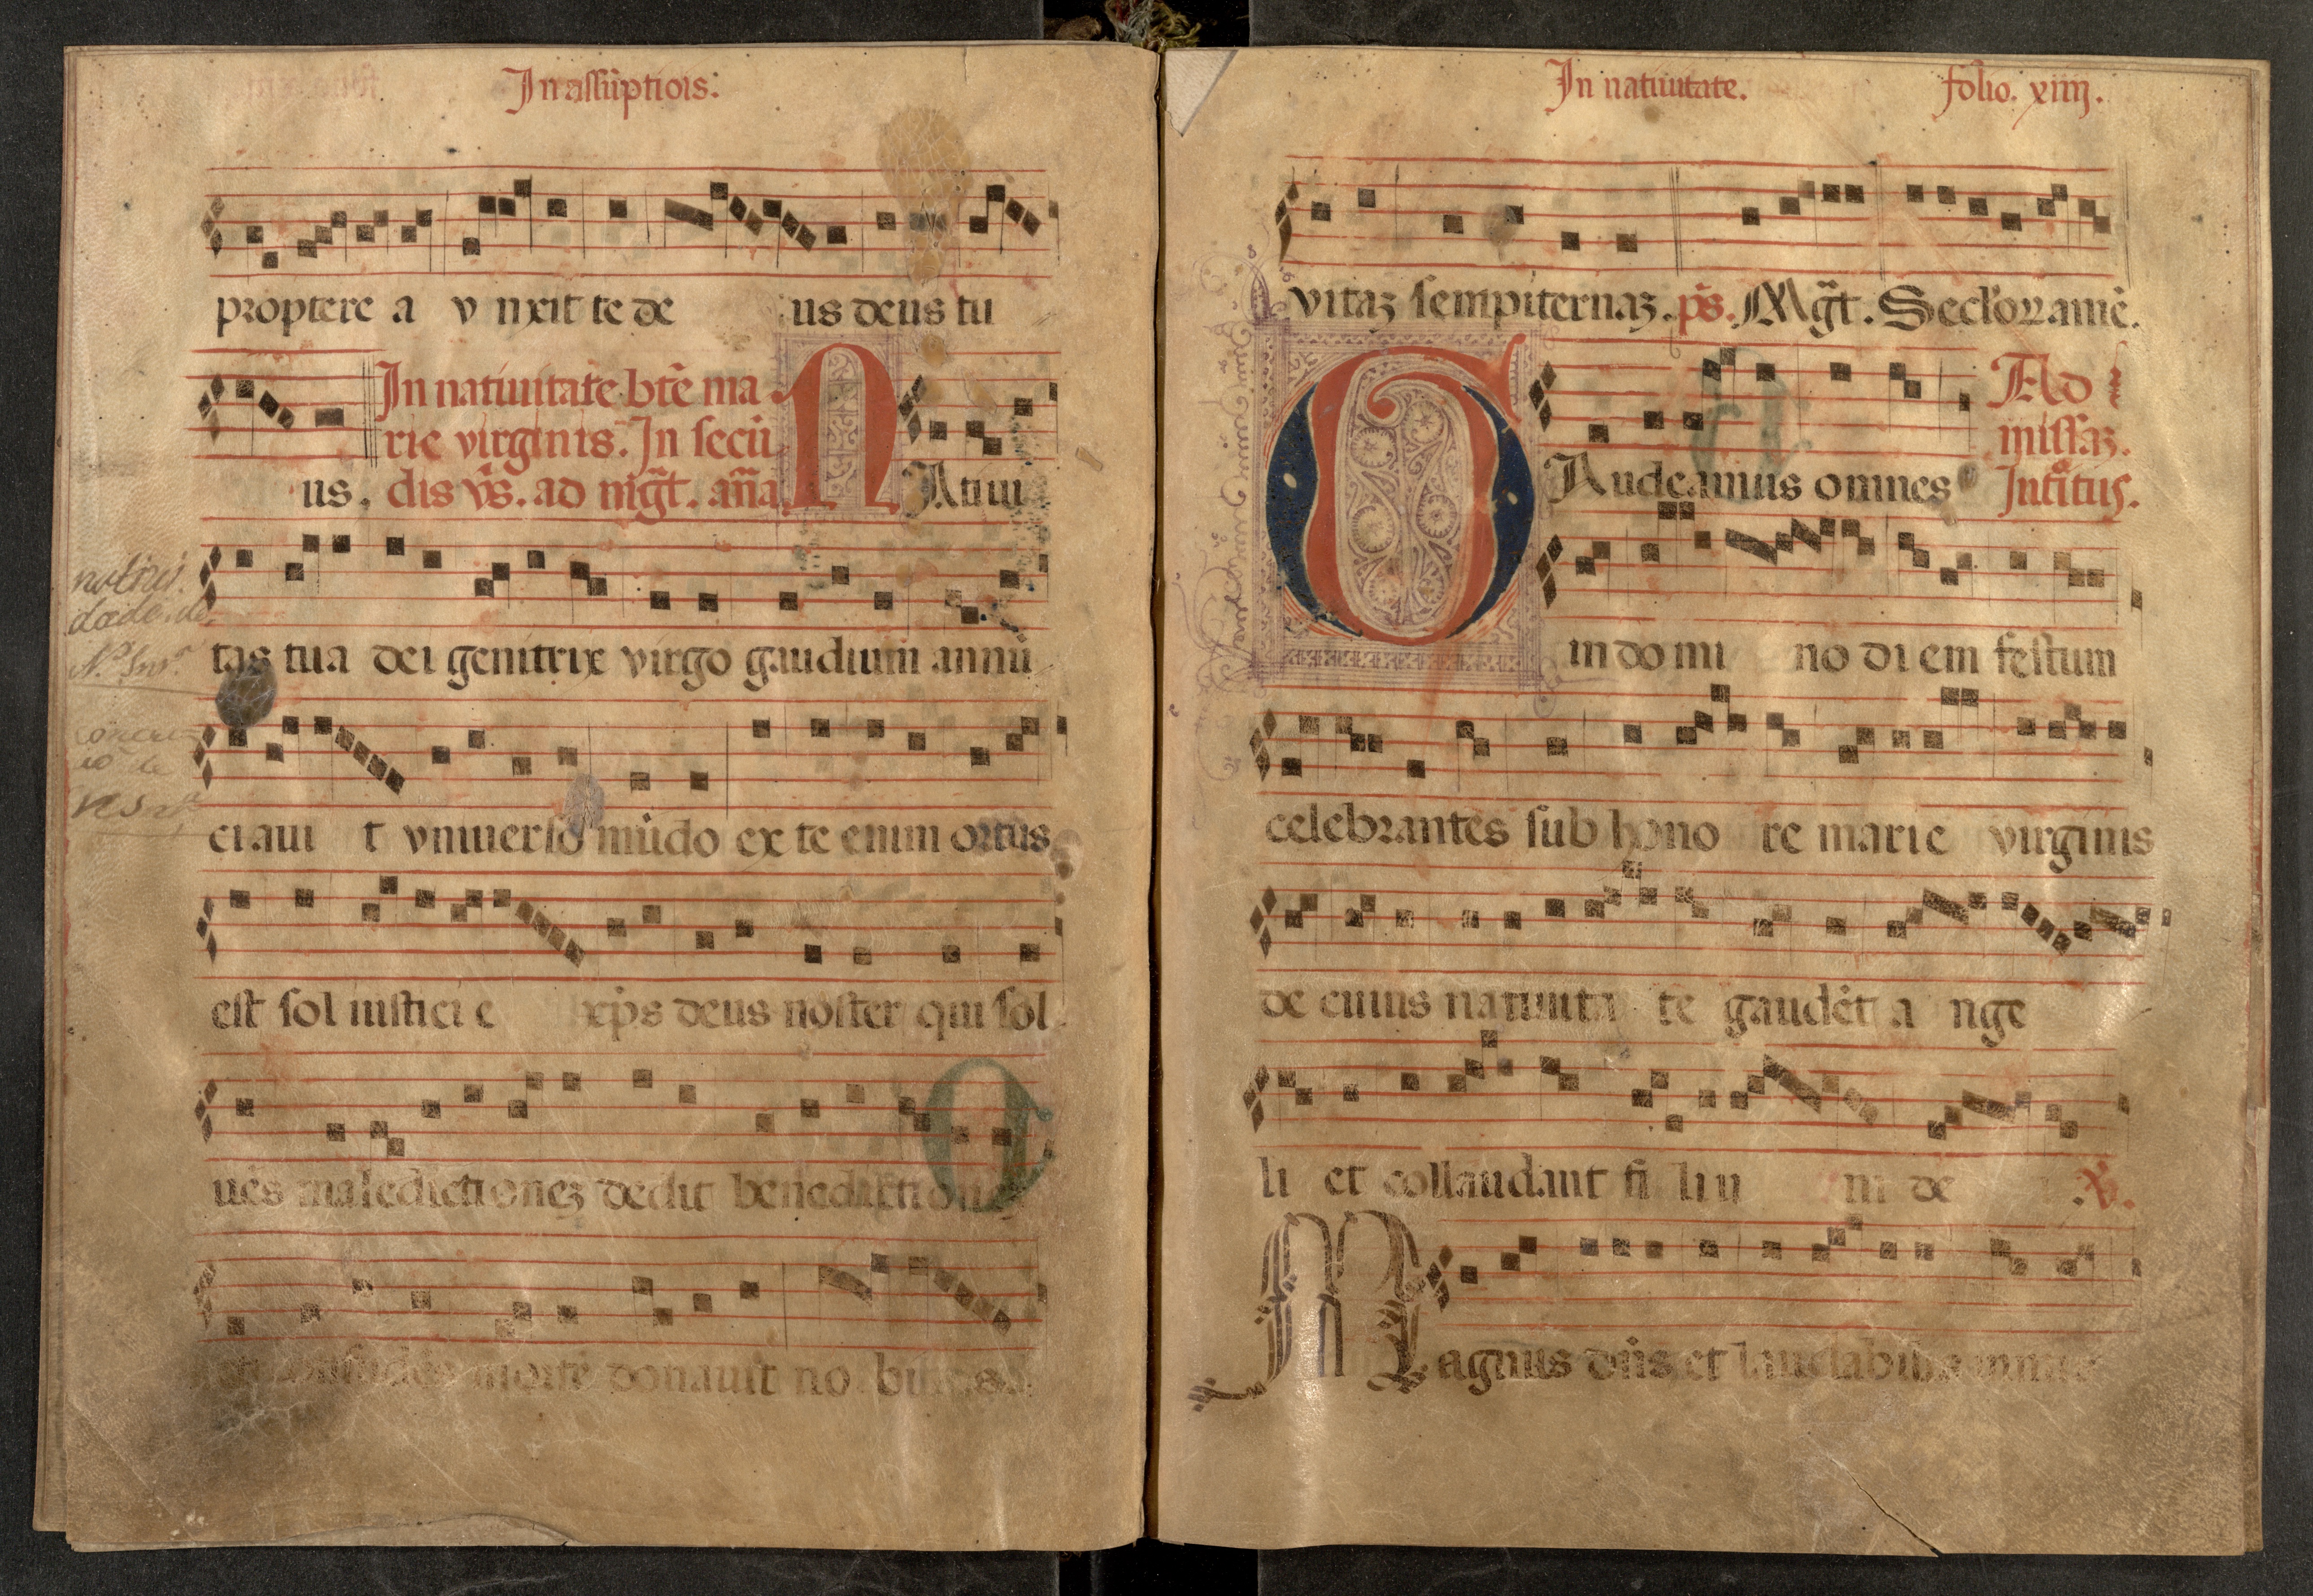 In assūptiōis:
proptere a v nxit te de us deus tu
In natiuitate btē ma
rie virginis. In secū
us. dis vs̄. ad mg̃t. añа N Atiui
tas tua dei genitrix virgo gaudium annū
ciaui t vniuerso mūdo ex te enim ortus
est sol iusticie xp̄s deus noster qui sol
uēs maledictionez dedit benedictione
mortē donauit no bis
In natiuitate. folio. xiiij.
vitaz sempiternaz. ps̄. Mg̃t. Seclorꝝ amē.
G Audeamus omnes Ad
missaz.
Introitus.
in do mi no di em festum
celebrantes sub hono re marie virginis
de cuius natiuita te gaudēt a nge
li et collaudant fi liu m de .V̄.
Magnus dn̄s et laudabilis nimis